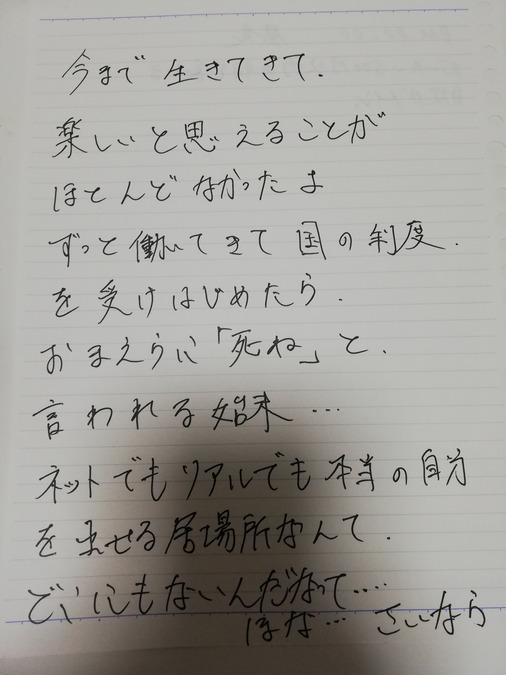 今まで生きてきて.
楽しいと思えることが
ほとんどなかったよ
ずっと働いてきて国の制度.
を受けはじめたら.
おまえらに「死ね」と.
言われる始末…
ネットでもリアルでも本当の自分
を出せる居場所なんて.
どこにもないんだなって....
ほな… さいなら